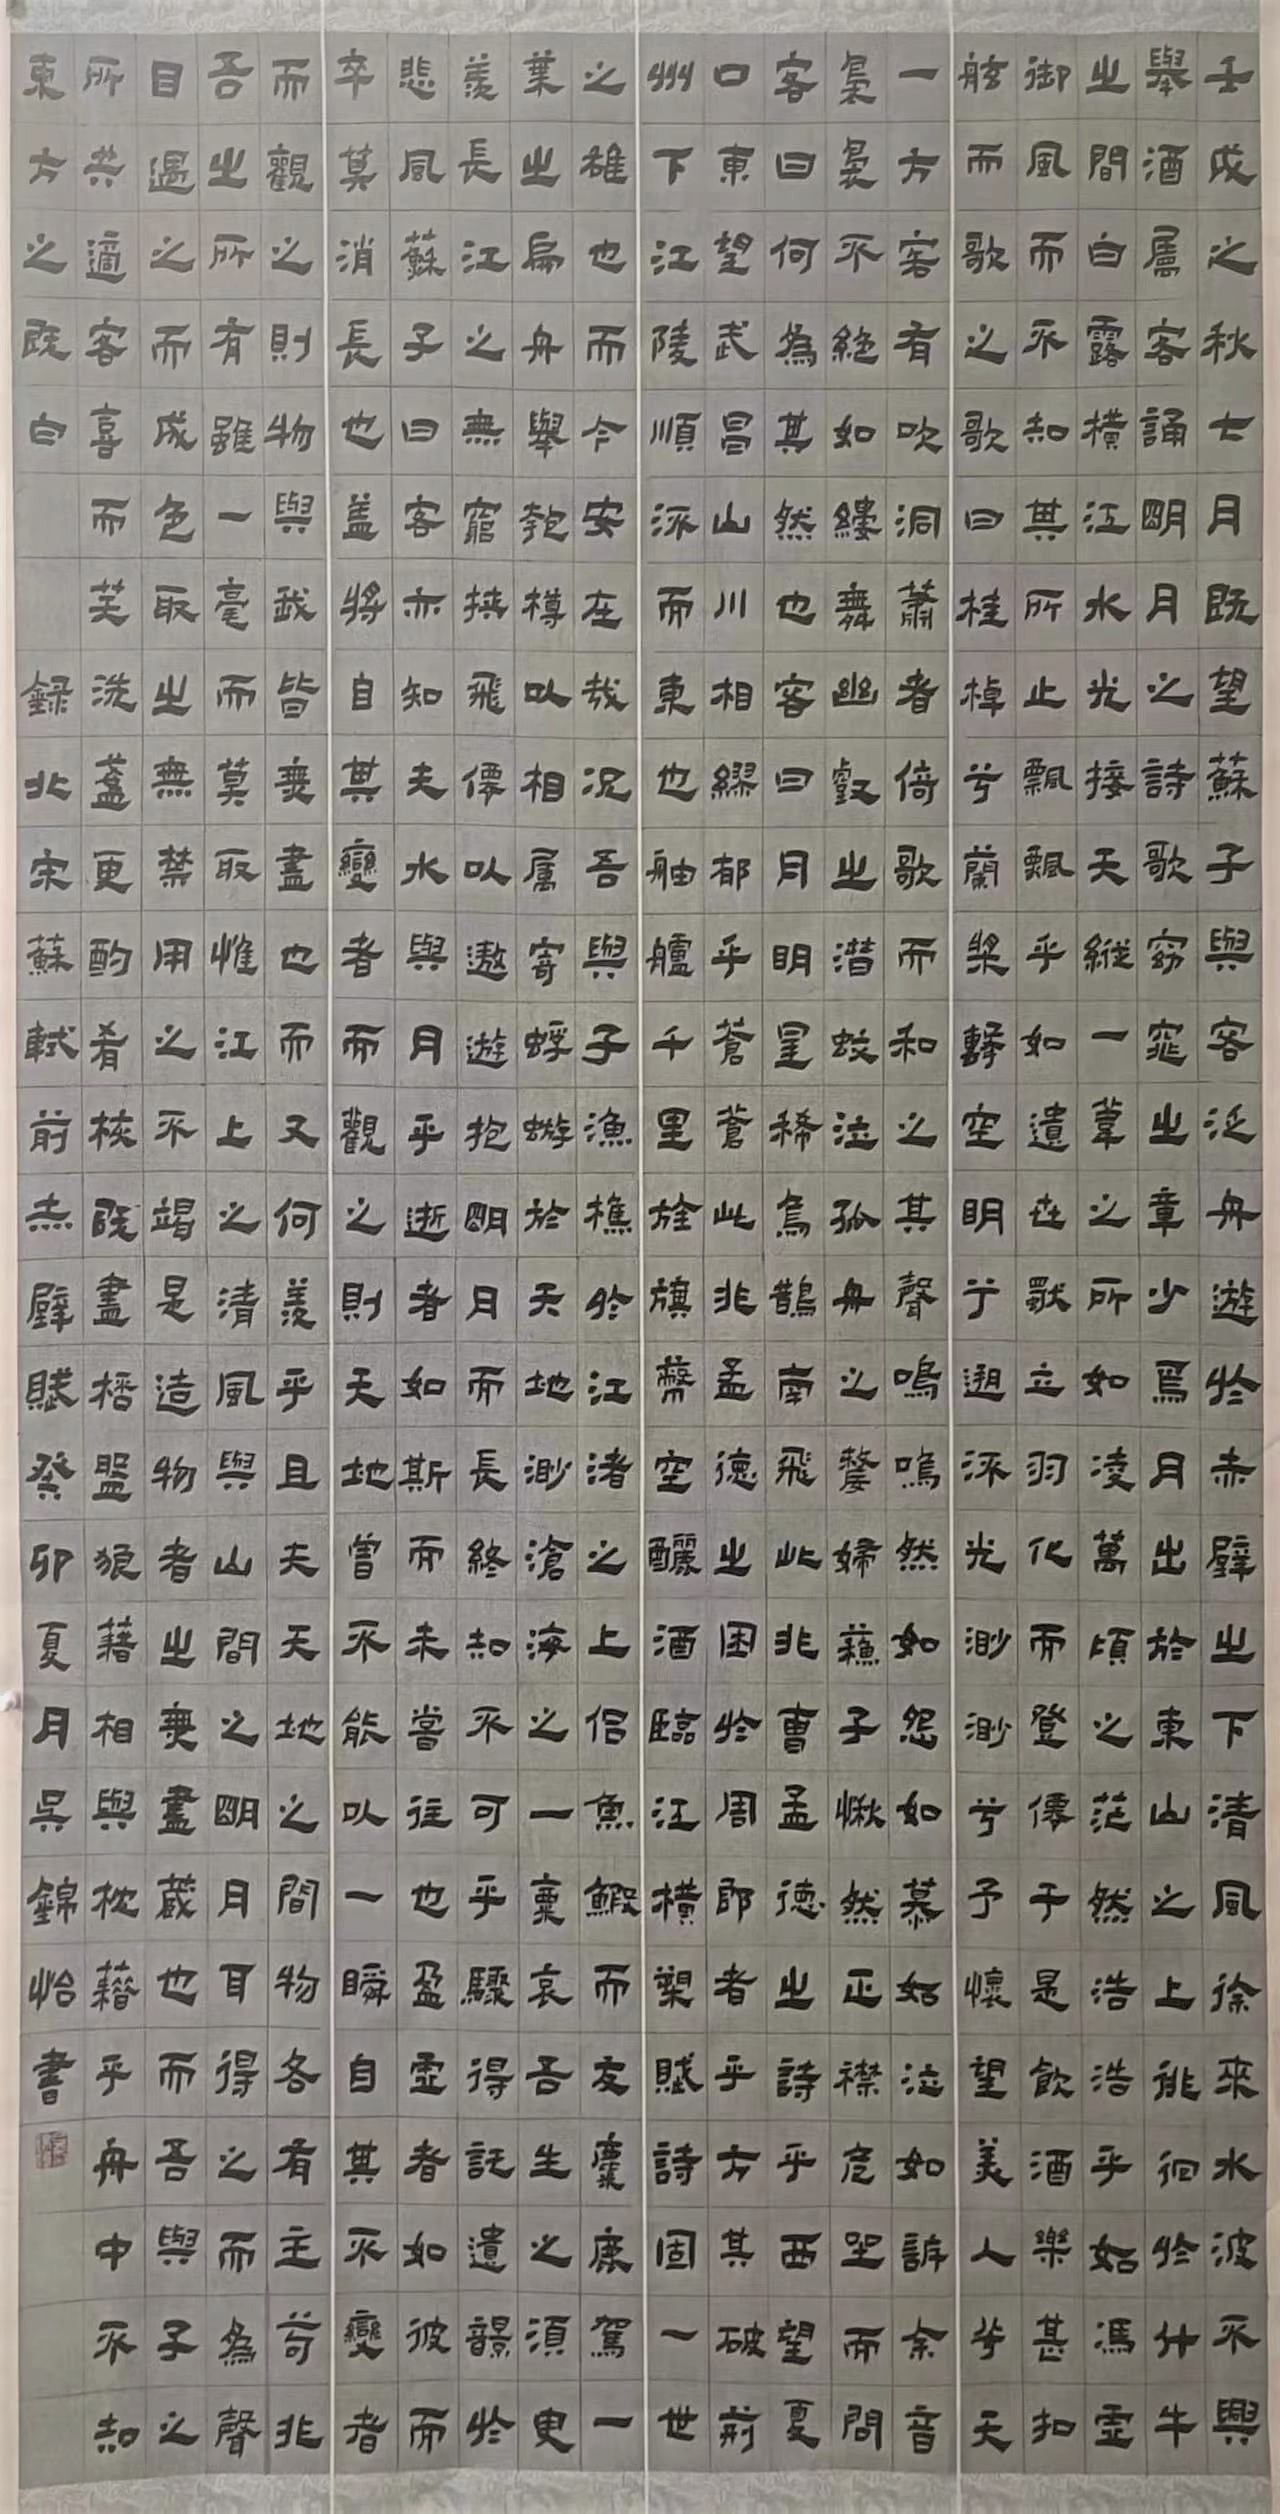 壬戌之秋七月既望蘇子與客泛舟遊於赤壁之下清風徐來水波不興
舉酒屬客誦明月之詩歌窈窕之章少焉月出於東山之上徘徊於斗牛
之間白露橫江水光接天縱一葦之所如凌萬頃之茫然浩浩乎如馮虛
御風而不知其所止飄飄乎如遺世獨立羽化而登僊于是飲酒樂甚扣
舷而歌之歌曰桂棹兮蘭槳擊空明兮遡流光渺渺兮予懷望美人兮天
一方客有吹洞蕭者倚歌而和之其聲鳴鳴然如怨如慕如泣如訴余音
裊裊不絕如縷舞幽壑之潛蛟泣孤舟之嫠婦蘇子愀然正襟危坐而問
客曰何為其然也客曰月明星稀烏鵲南飛此非曹孟德之詩乎西望夏
口東望武昌山川相繆郁乎蒼蒼此非孟德之困於周郎者乎方其破荊
州下江陵順流而東也舳艫千里旌旗蔽空釃酒臨江橫槊賦詩固一世
之雄也而今安在哉況吾與子漁樵於江渚之上侶魚鰕而友麋鹿駕一
葉之扁舟舉匏樽以相属寄蜉蝣於天地渺滄海之一粟哀吾生之須臾
羨長江之無窮挾飛僊以遨遊抱明月而長終知不可乎驟得託遺響於
悲風蘇子曰客亦知夫水與月乎逝者如斯而未嘗往也盈虛者如彼而
卒莫消長也盖將自其變者而觀之則天地曾不能以一瞬自其不變者
而觀之則物與我皆無盡也而又何羨乎且夫天地之間物各有主苟非
吾之所有雖一毫而莫取惟江上之清風與山間之明月耳得之而為聲
目遇之而成色取之無禁用之不竭是造物者之無盡藏也而吾與子之
所共適客喜而笑洗盞更酌肴核既盡桮盤狼藉相與枕藉乎舟中不知
東方之既白 錄北宋蘇軾前赤壁賦癸卯夏月吳錦怡書